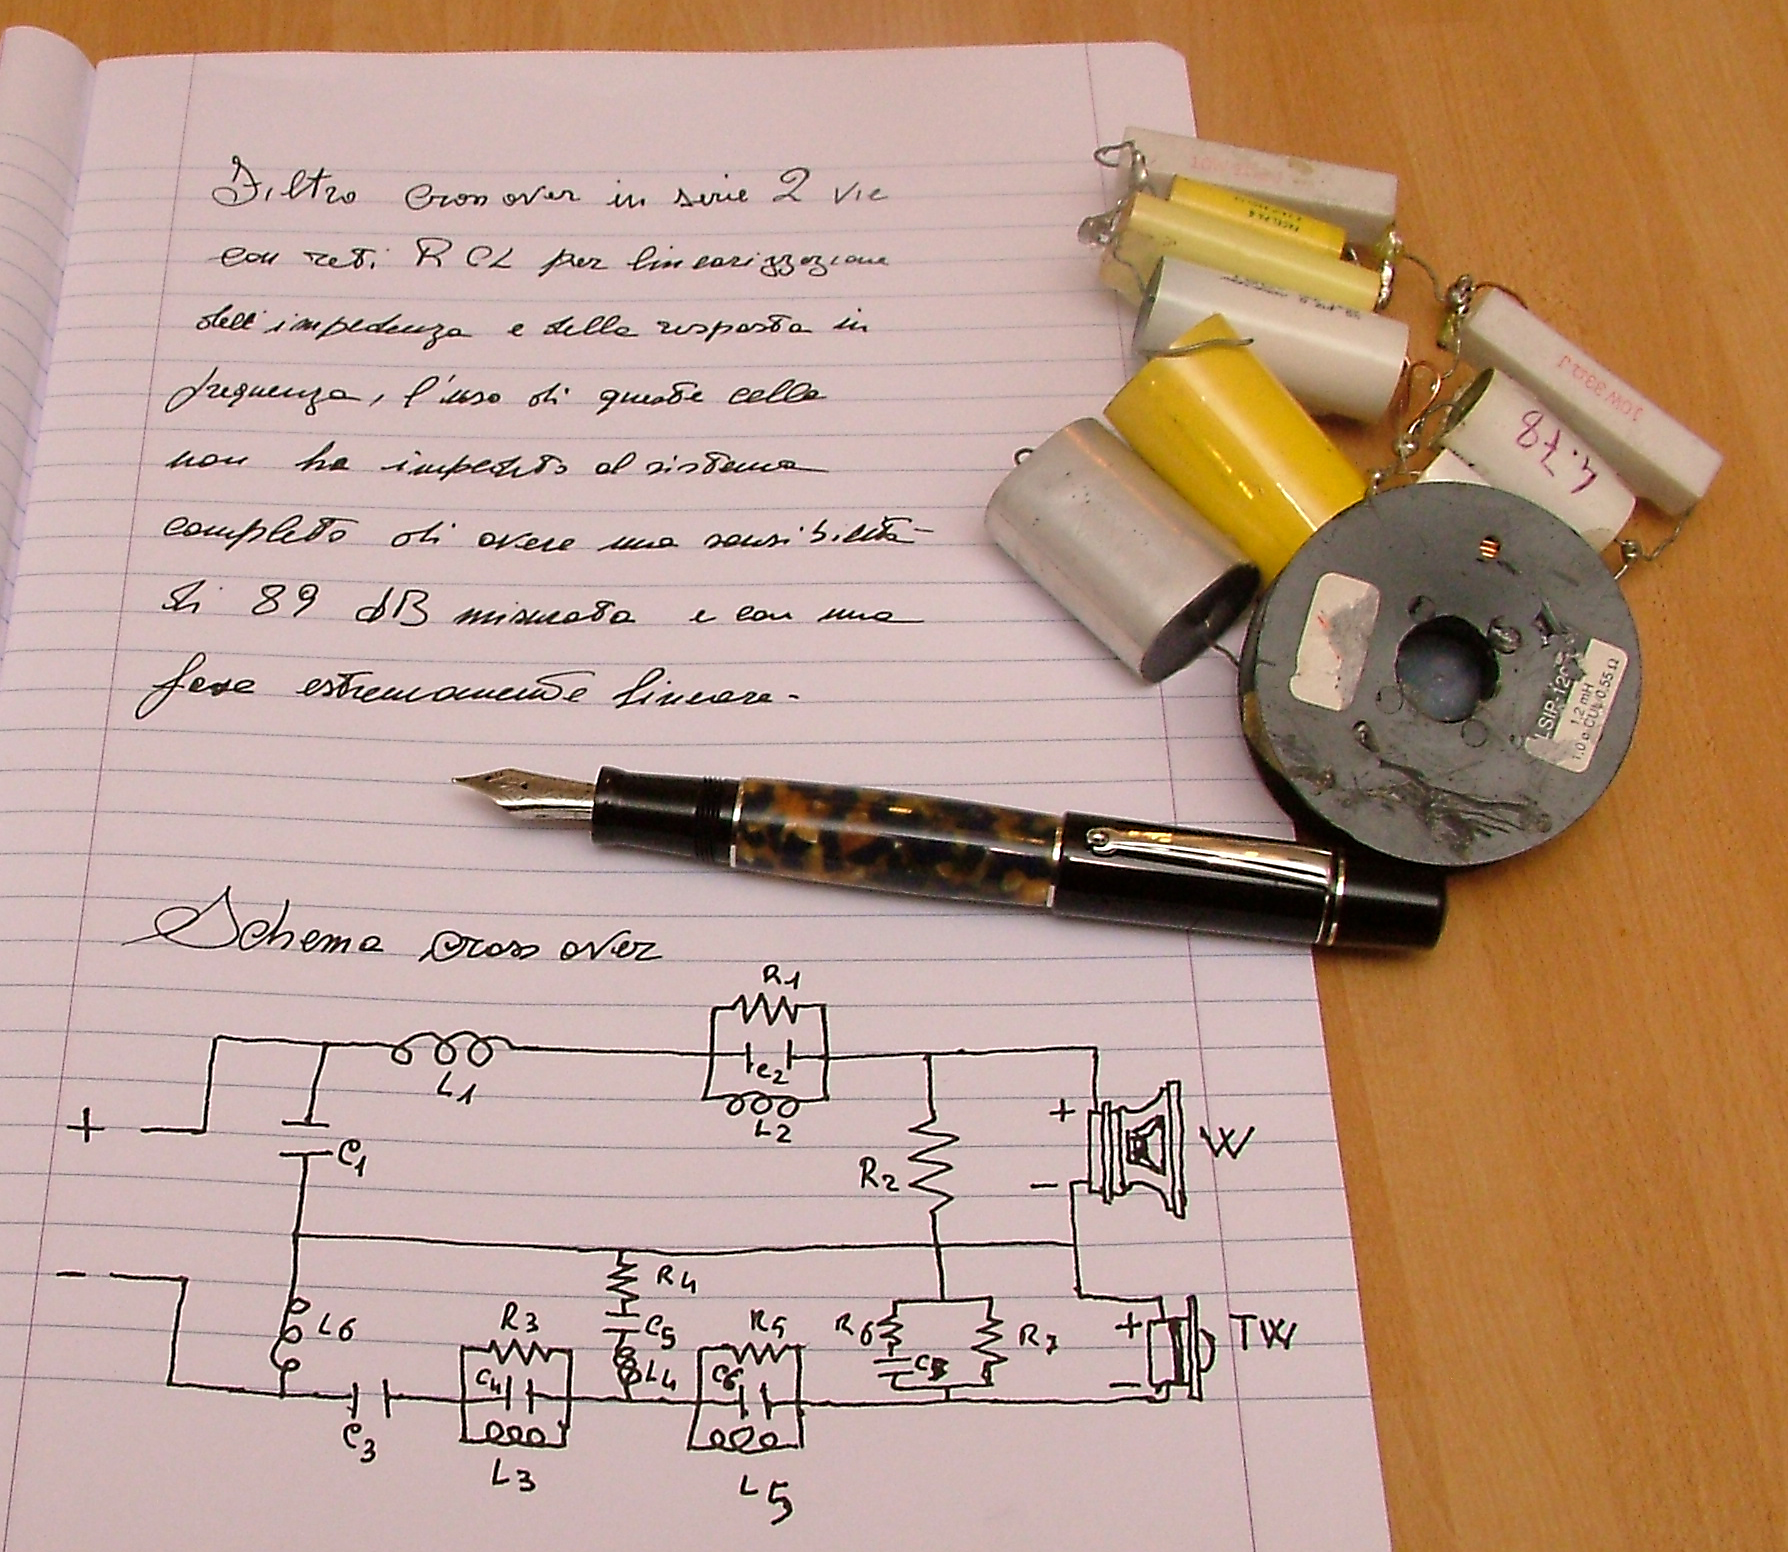 Filtro cross over in serie 2 vie
con reti RCL per linearizzazione
dell'impedenza e della risposta in
frequenza, l'uso di queste celle
non ha impedito al sistema
completo di avere una sensibilità
di 89 dB misurata e con una
fase estremamente lineare.
Schema cross over
R1
C2
L1
L2
+
C1
+
W
R2
-
-
R4
L6
R3
C5
R5
R6
R7
+
TW
C4
L4
C6
-
C3
L3
L5
10W33ΩJ
4.78
LSIP-12
1.2 mH
0.55Ω